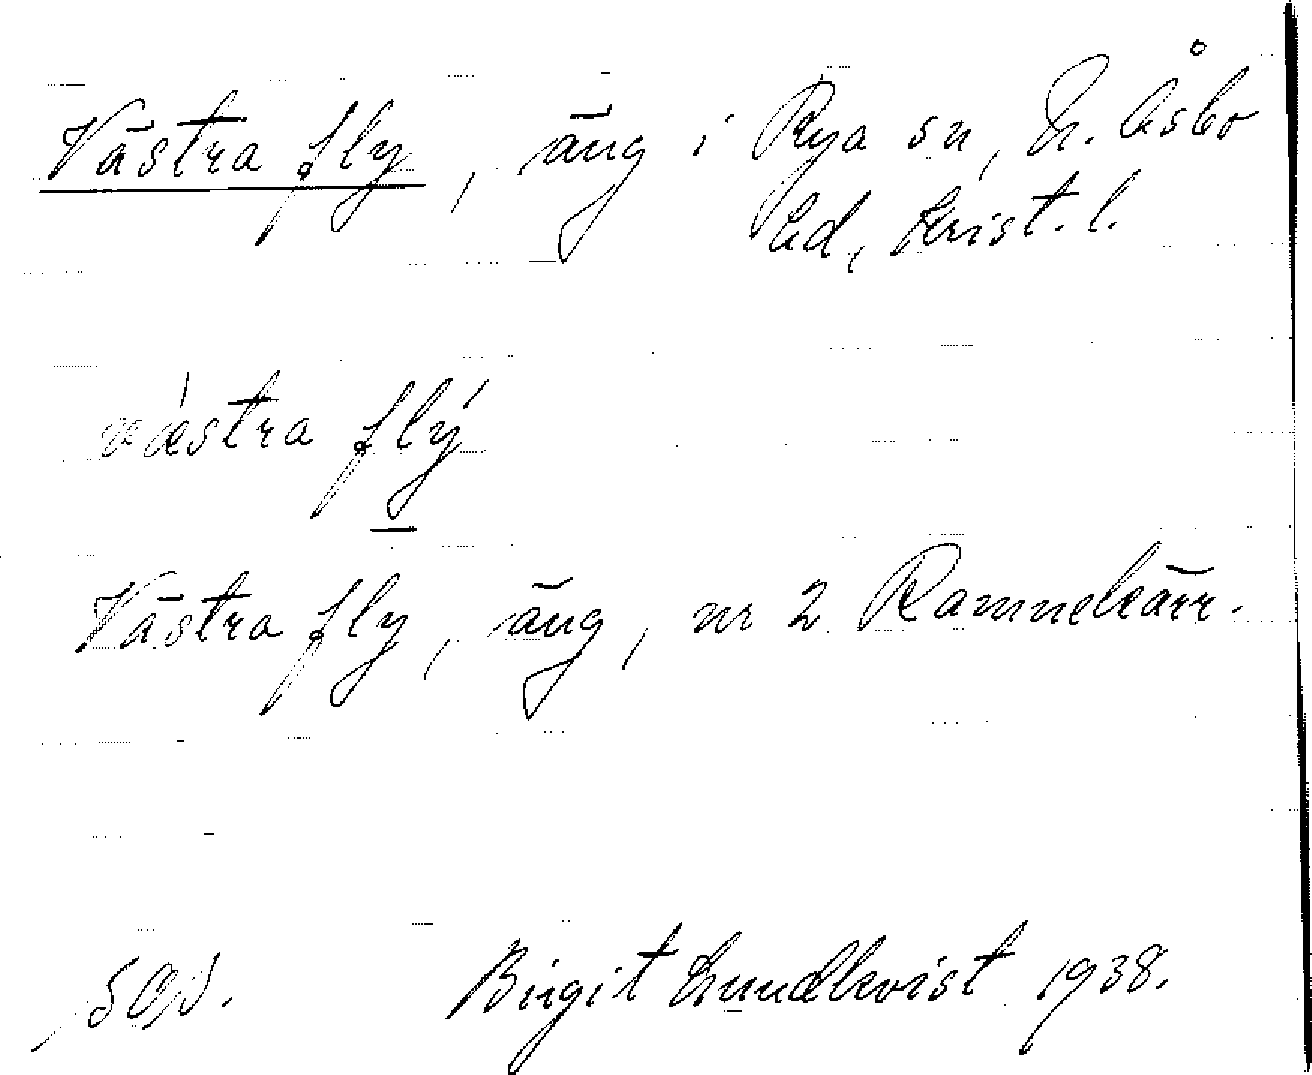 Västra fly, äng i Rya sn, N. Åsbo
hd, Krist. l.
vǽstra flý
Västra fly, äng, nr 2 Ramnekärr.
Birgit Lundkvist 1938.